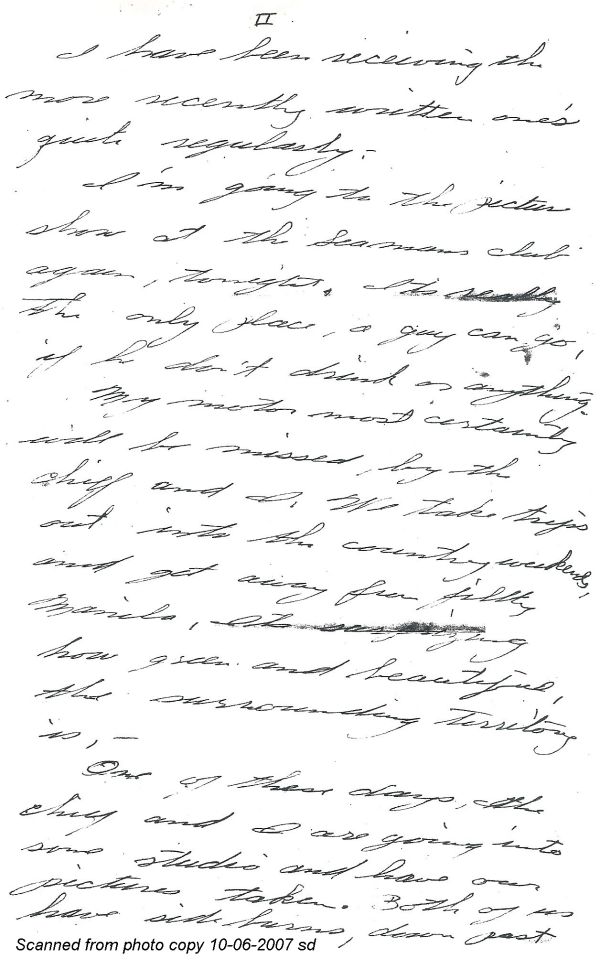 II
I have been receiving the
more recently written one's
quite regularly. -
I'm going to the picture
show at the Seamans club
again, tonight. Its really
the only place, a guy can go,
if he don't drink or anything.
My motor most certainly
will be missed, by the
chief and I. We take trips
out into the country weekends,
and get away from filthy
Manila. Its surprizing
how green and beautiful,
the surrounding territory
is, -
One of these days, the
chief and I are going into
some studio and have our
pictures taken. Both of us
have side burns, down past
Scanned from photo copy 10-06-2007 sd